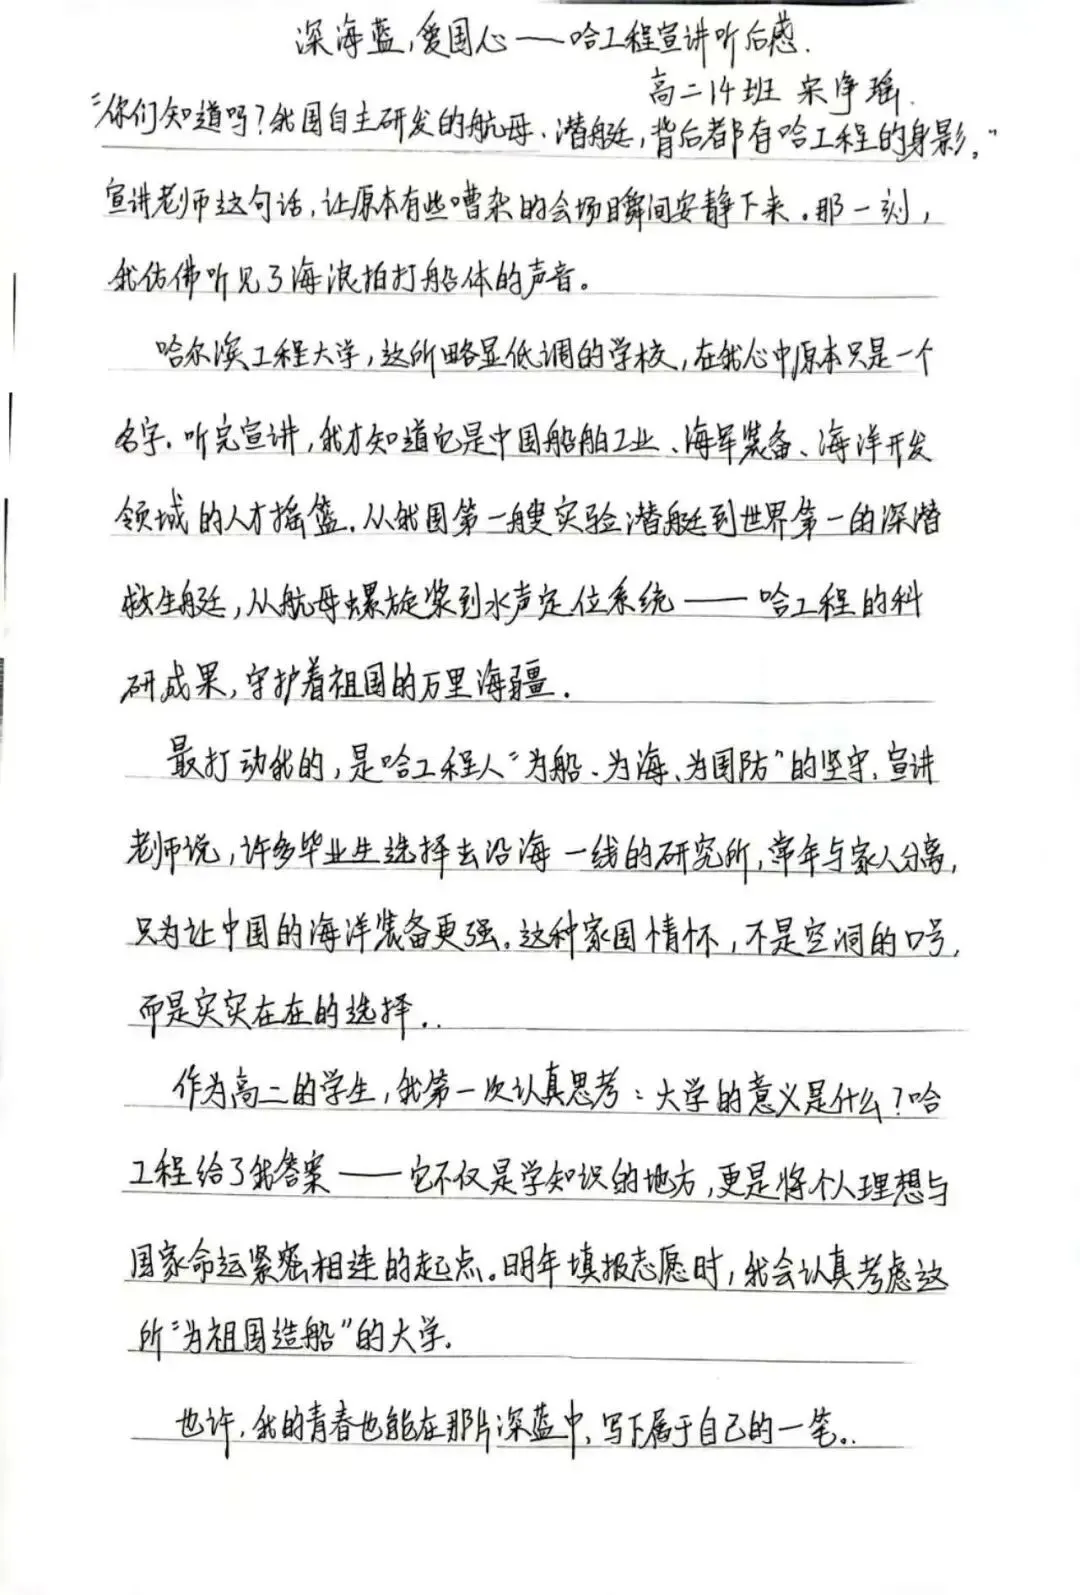 深海蓝,爱国心——哈工程宣讲听后感.
高二14班 宋净瑶.
“你们知道吗?我国自主研发的航母、潜艇,背后都有哈工程的身影。”
宣讲老师这句话,让原本有些嘈杂的会场瞬间安静下来。那一刻,
我仿佛听见了海浪拍打船体的声音。
哈尔滨工程大学,这所略显低调的学校,在我心中原本只是一个
名字.听完宣讲,我才知道它是中国船舶工业、海军装备、海洋开发
领域的人才摇篮.从我国第一艘实验潜艇到世界第一的深潜
救生艇,从航母螺旋桨到水声定位系统——哈工程的科
研成果,守护着祖国的万里海疆.
最打动我的,是哈工程人“为船、为海、为国防”的坚守.宣讲
老师说,许多毕业生选择去沿海一线的研究所,常年与家人分离,
只为让中国的海洋装备更强.这种家国情怀,不是空洞的口号,
而是实实在在的选择..
作为高二的学生,我第一次认真思考:大学的意义是什么?哈
工程给了我答案——它不仅是学知识的地方,更是将个人理想与
国家命运紧密相连的起点.明年填报志愿时,我会认真考虑这
所“为祖国造船”的大学.
也许,我的青春也能在那片深蓝中,写下属于自己的一笔..